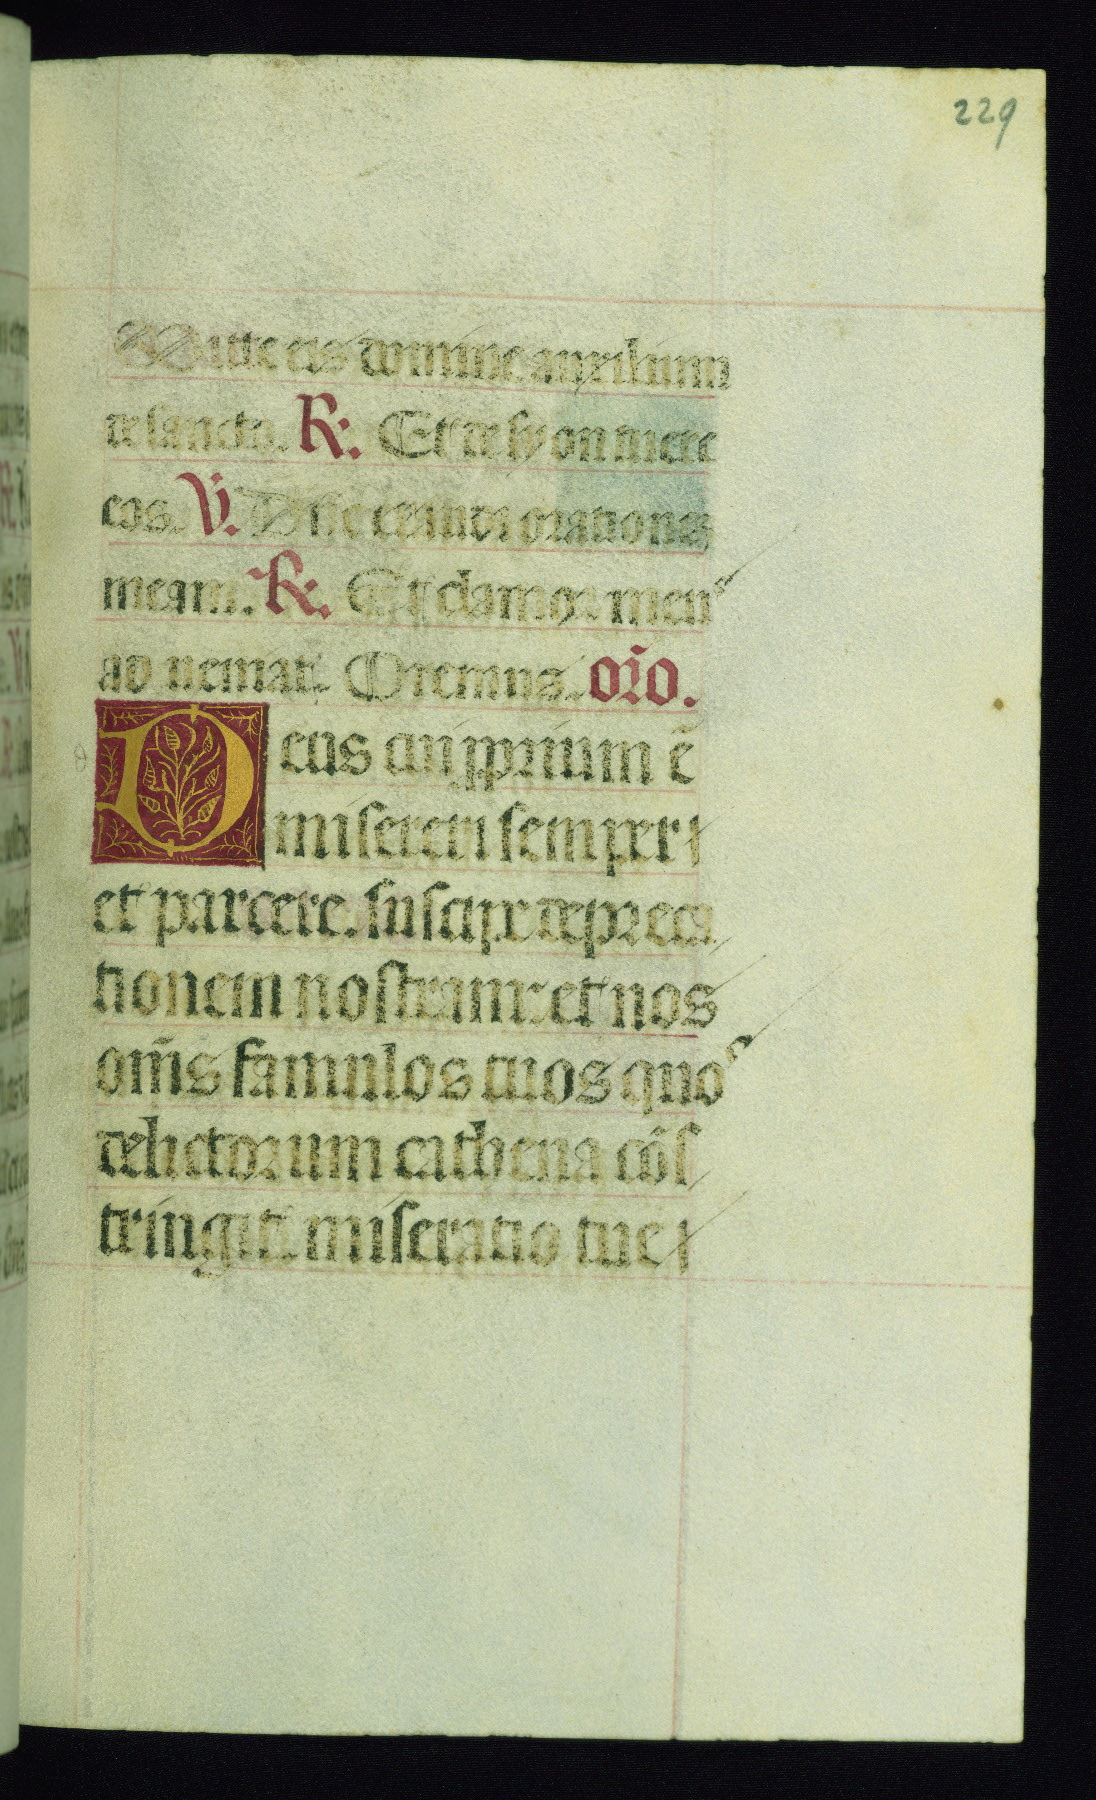 229
Mitte eis domine auxilium
de sancto. R. Et de syon tuere
eos. V. Dñe exaudi orationē
meam. R. Et clamor meus
ad te veniat. Oremus. orō.
Deus cui ppriuum ē
misereri semper
et parcere. suscipe depreca
tionem nostram: et nos
om̄s famulos tuos quos
delictorum cathena cōs
tringit. miseratio tue